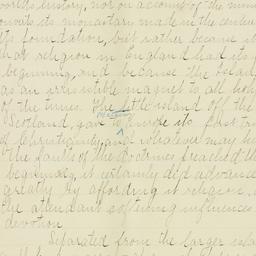 worlds history, nor on account of the monu
towards its monastary made in the centuri
its foundation, but rather because it
that religion in England had its
beginning, and because the island
as an irresistible magnet to all holy
of the times. The little island off the
Scotland, gave to Europe its first tra
of Christianity, and whatever may be
the faults of the doctrines preached th
beginning, it certainly did advance
greatly by affording it religion
the attendant softening influences
devotion.
Separated from the larger isla